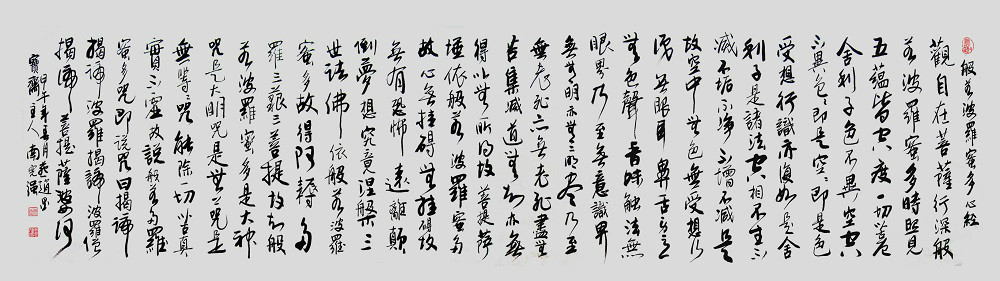 般若波羅蜜多心經
觀自在菩薩行深般
若波羅蜜多時照見
五蘊皆空度一切苦
舍利子色不異空空
不異色色即是空空即是色
受想行識亦復如是舍
利子是諸法空相不生不
滅不垢不淨不增不減是
故空中無色無受想行
識無眼耳鼻舌身意
無色聲香味觸法無
眼界乃至無意識界
無無明亦無無明盡乃至
無老死亦無老死盡無
苦集滅道無智亦無
得以無所得故菩提薩
埵依般若波羅蜜多
故心無挂礙無挂礙故
無有恐怖遠離顛
倒夢想究竟涅槃三
世諸佛依般若波羅
蜜多故得阿耨多
羅三藐三菩提故知般
若波羅蜜多是大神
咒是大明咒是無上咒是
無等咒能除一切苦真
實不虛故說般若多羅
蜜多咒即說咒曰揭諦
揭諦波羅揭諦波羅僧
揭諦菩提薩婆訶